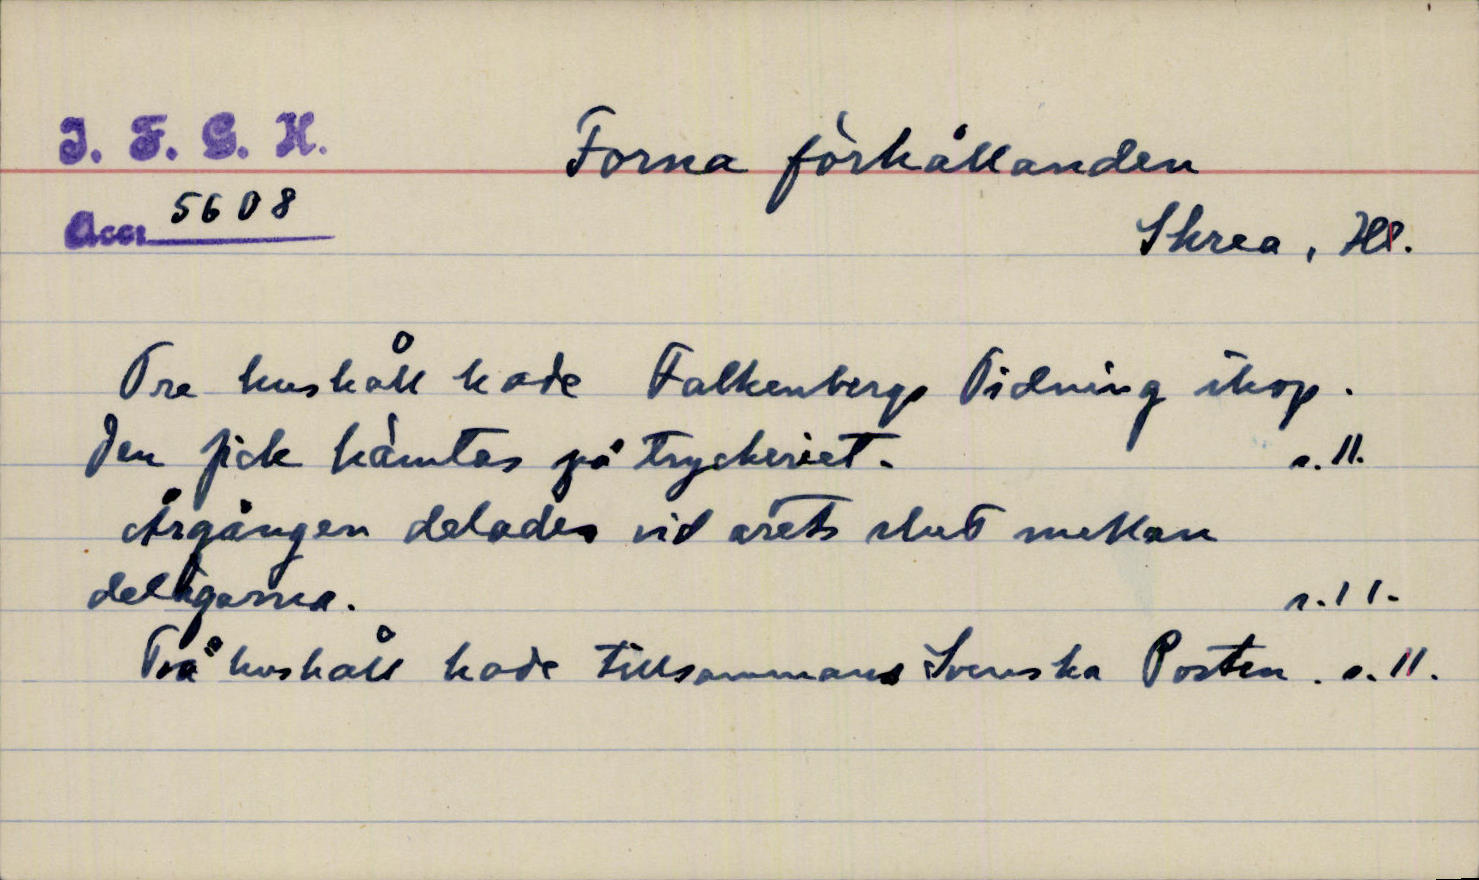 I. F. G. H.
Forna förhållanden
Acc. 5608
Skrea, Hl.
Tre hushåll hade Falkenbergs Tidning ihop.
Den fick hämtas på tryckeriet. s. 11.
Årgången delades vid årets slut mellan
delägarna. s. 11.
Två hushåll hade tillsammans Svenska Posten. s. 11.